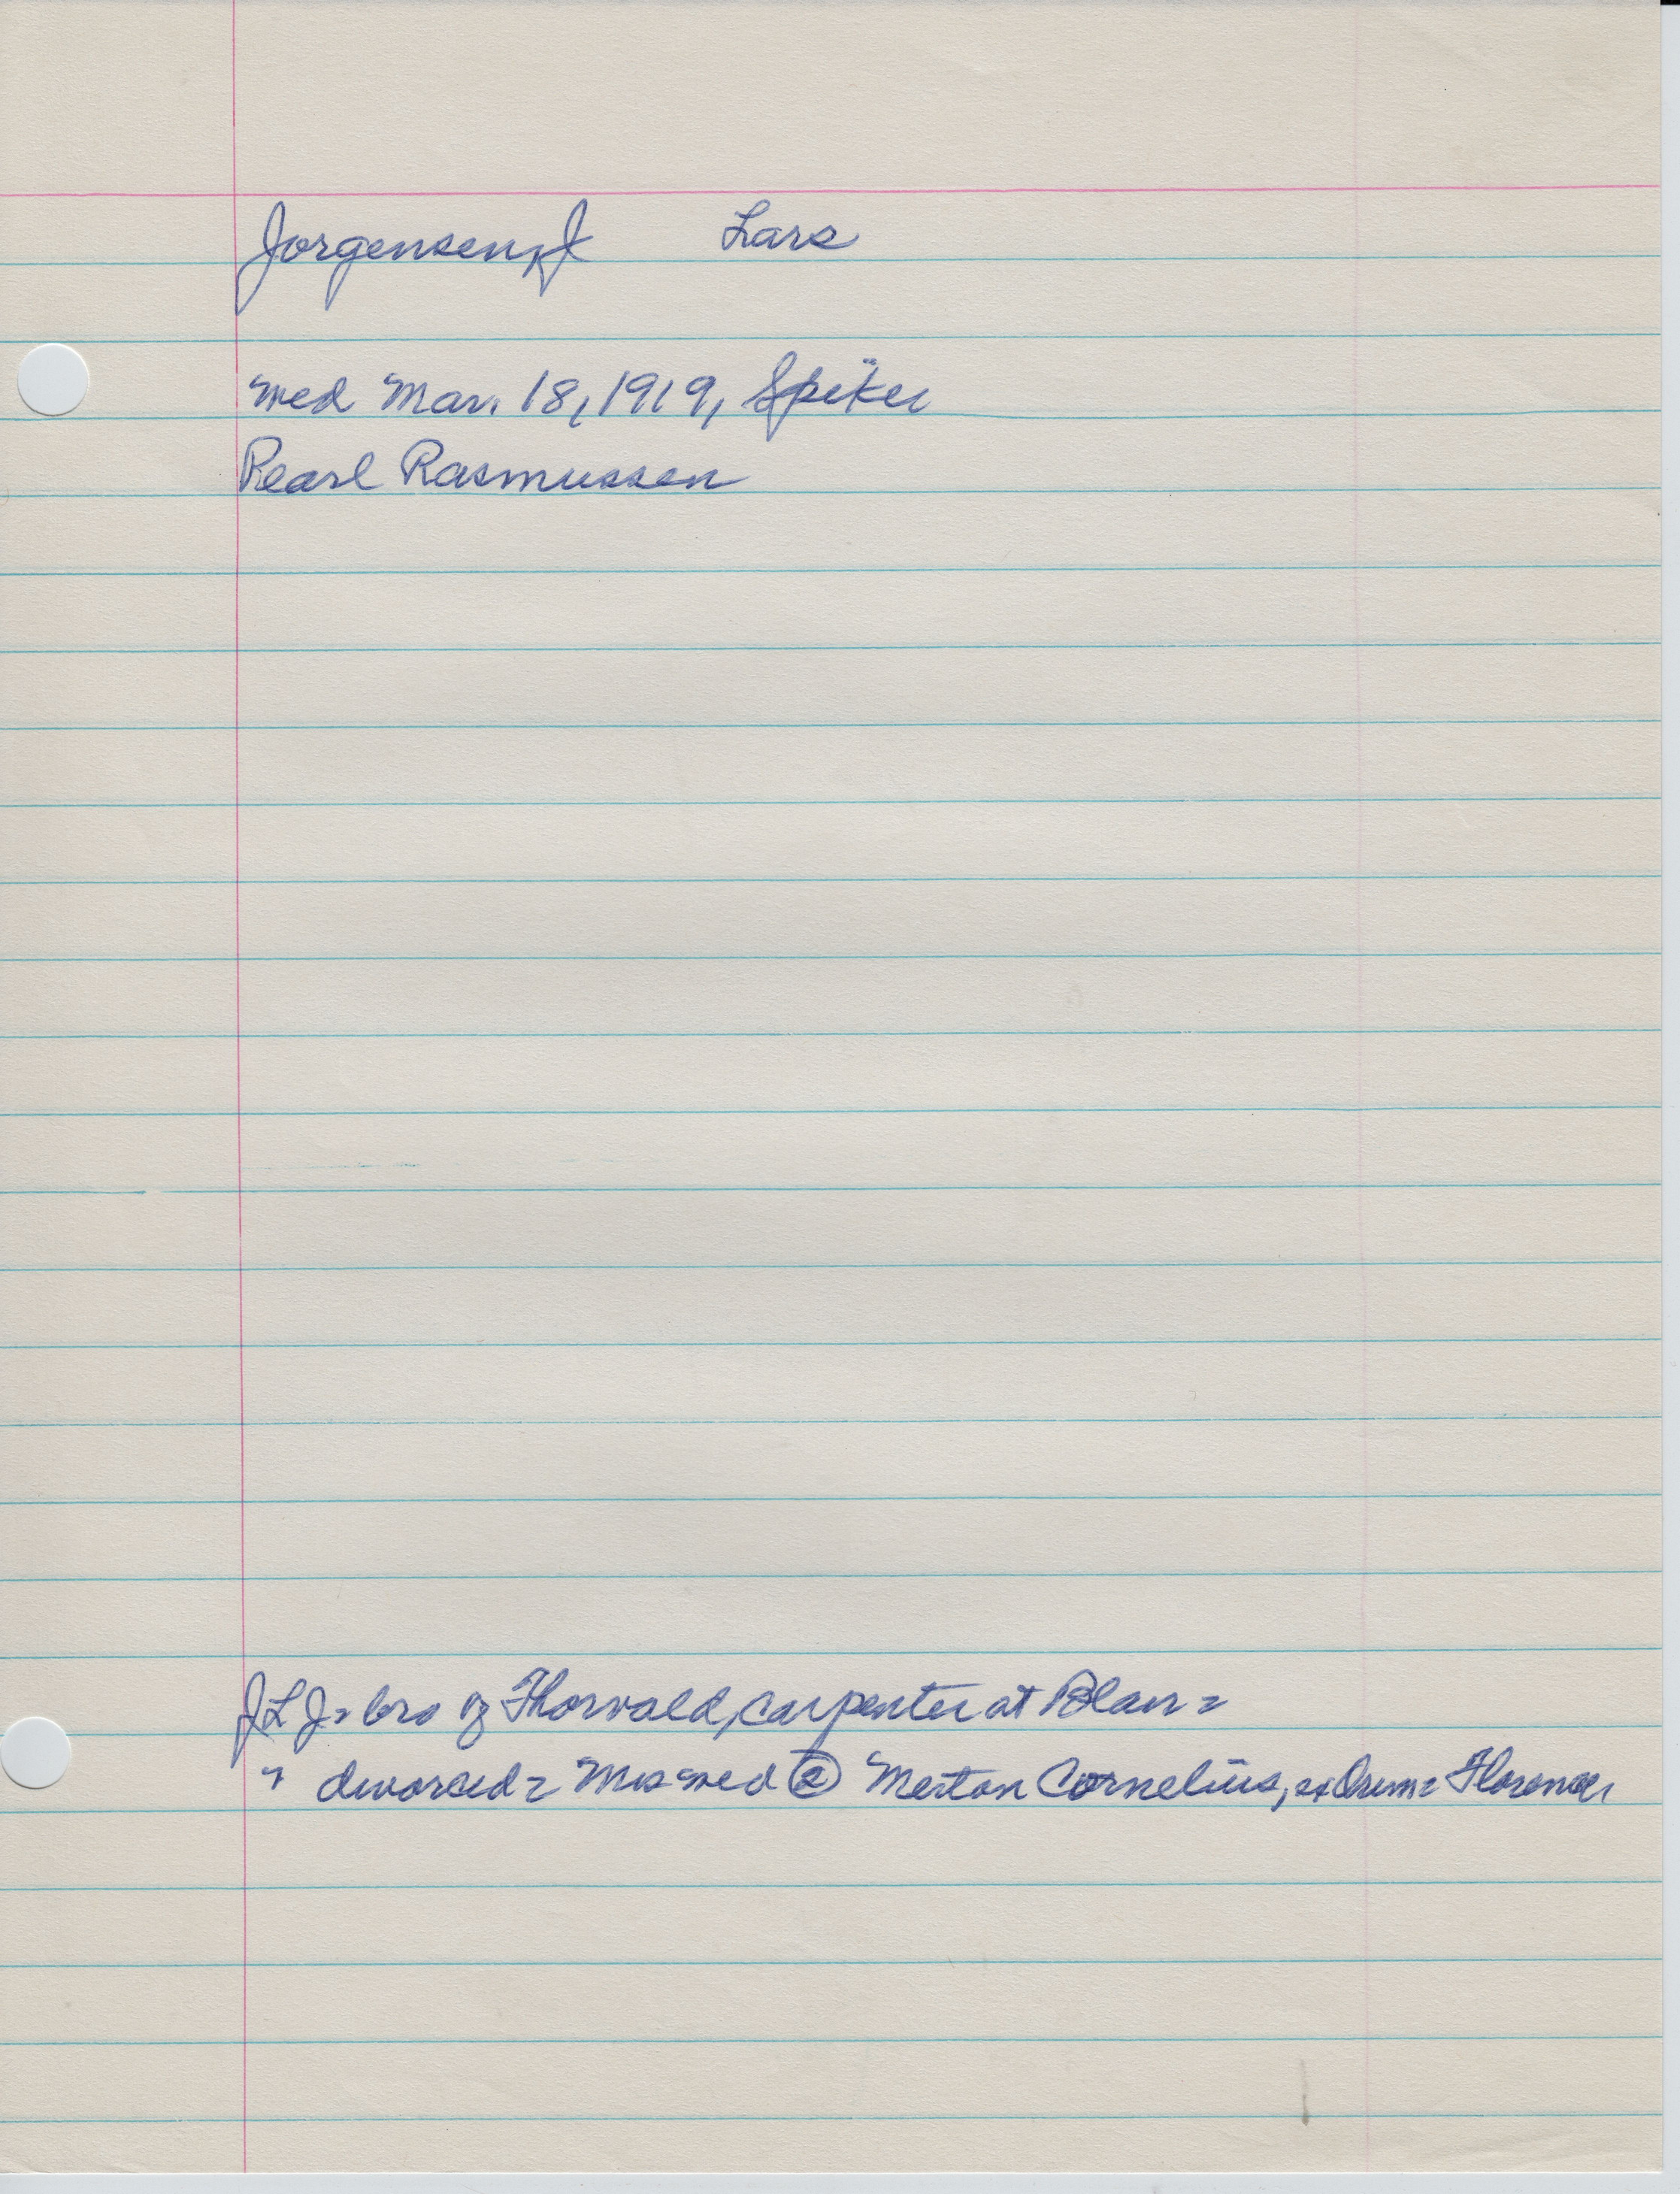 Jorgensen, J Lars
Med Mar. 18, 1919, Spiker
Pearl Rasmussen
J L J = bro of Thorvald, carpenter at Blair =
" divorced = Mrs med ② Merton Cornelius, ex Orum = Florence,